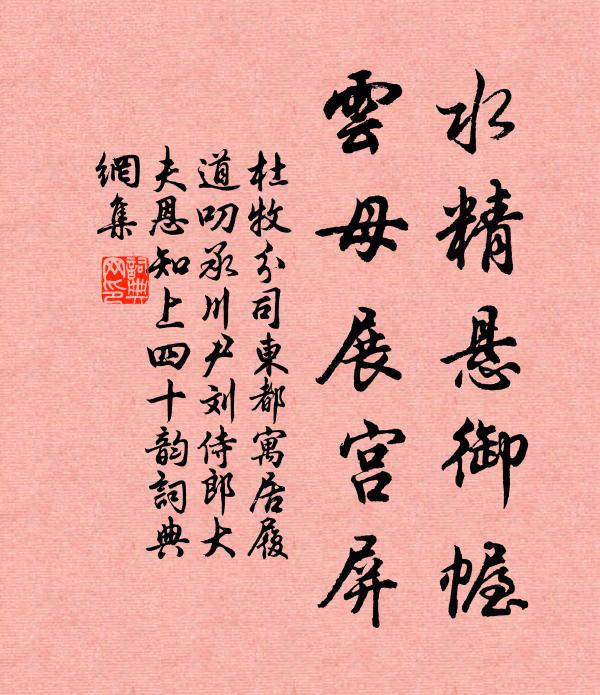 水精悬御幄
雲母展宫屏
杜牧分司東都寓居履
道叨承川尹刘侍郎大
夫恩知上四十韵詞典
網集
詞典
网印